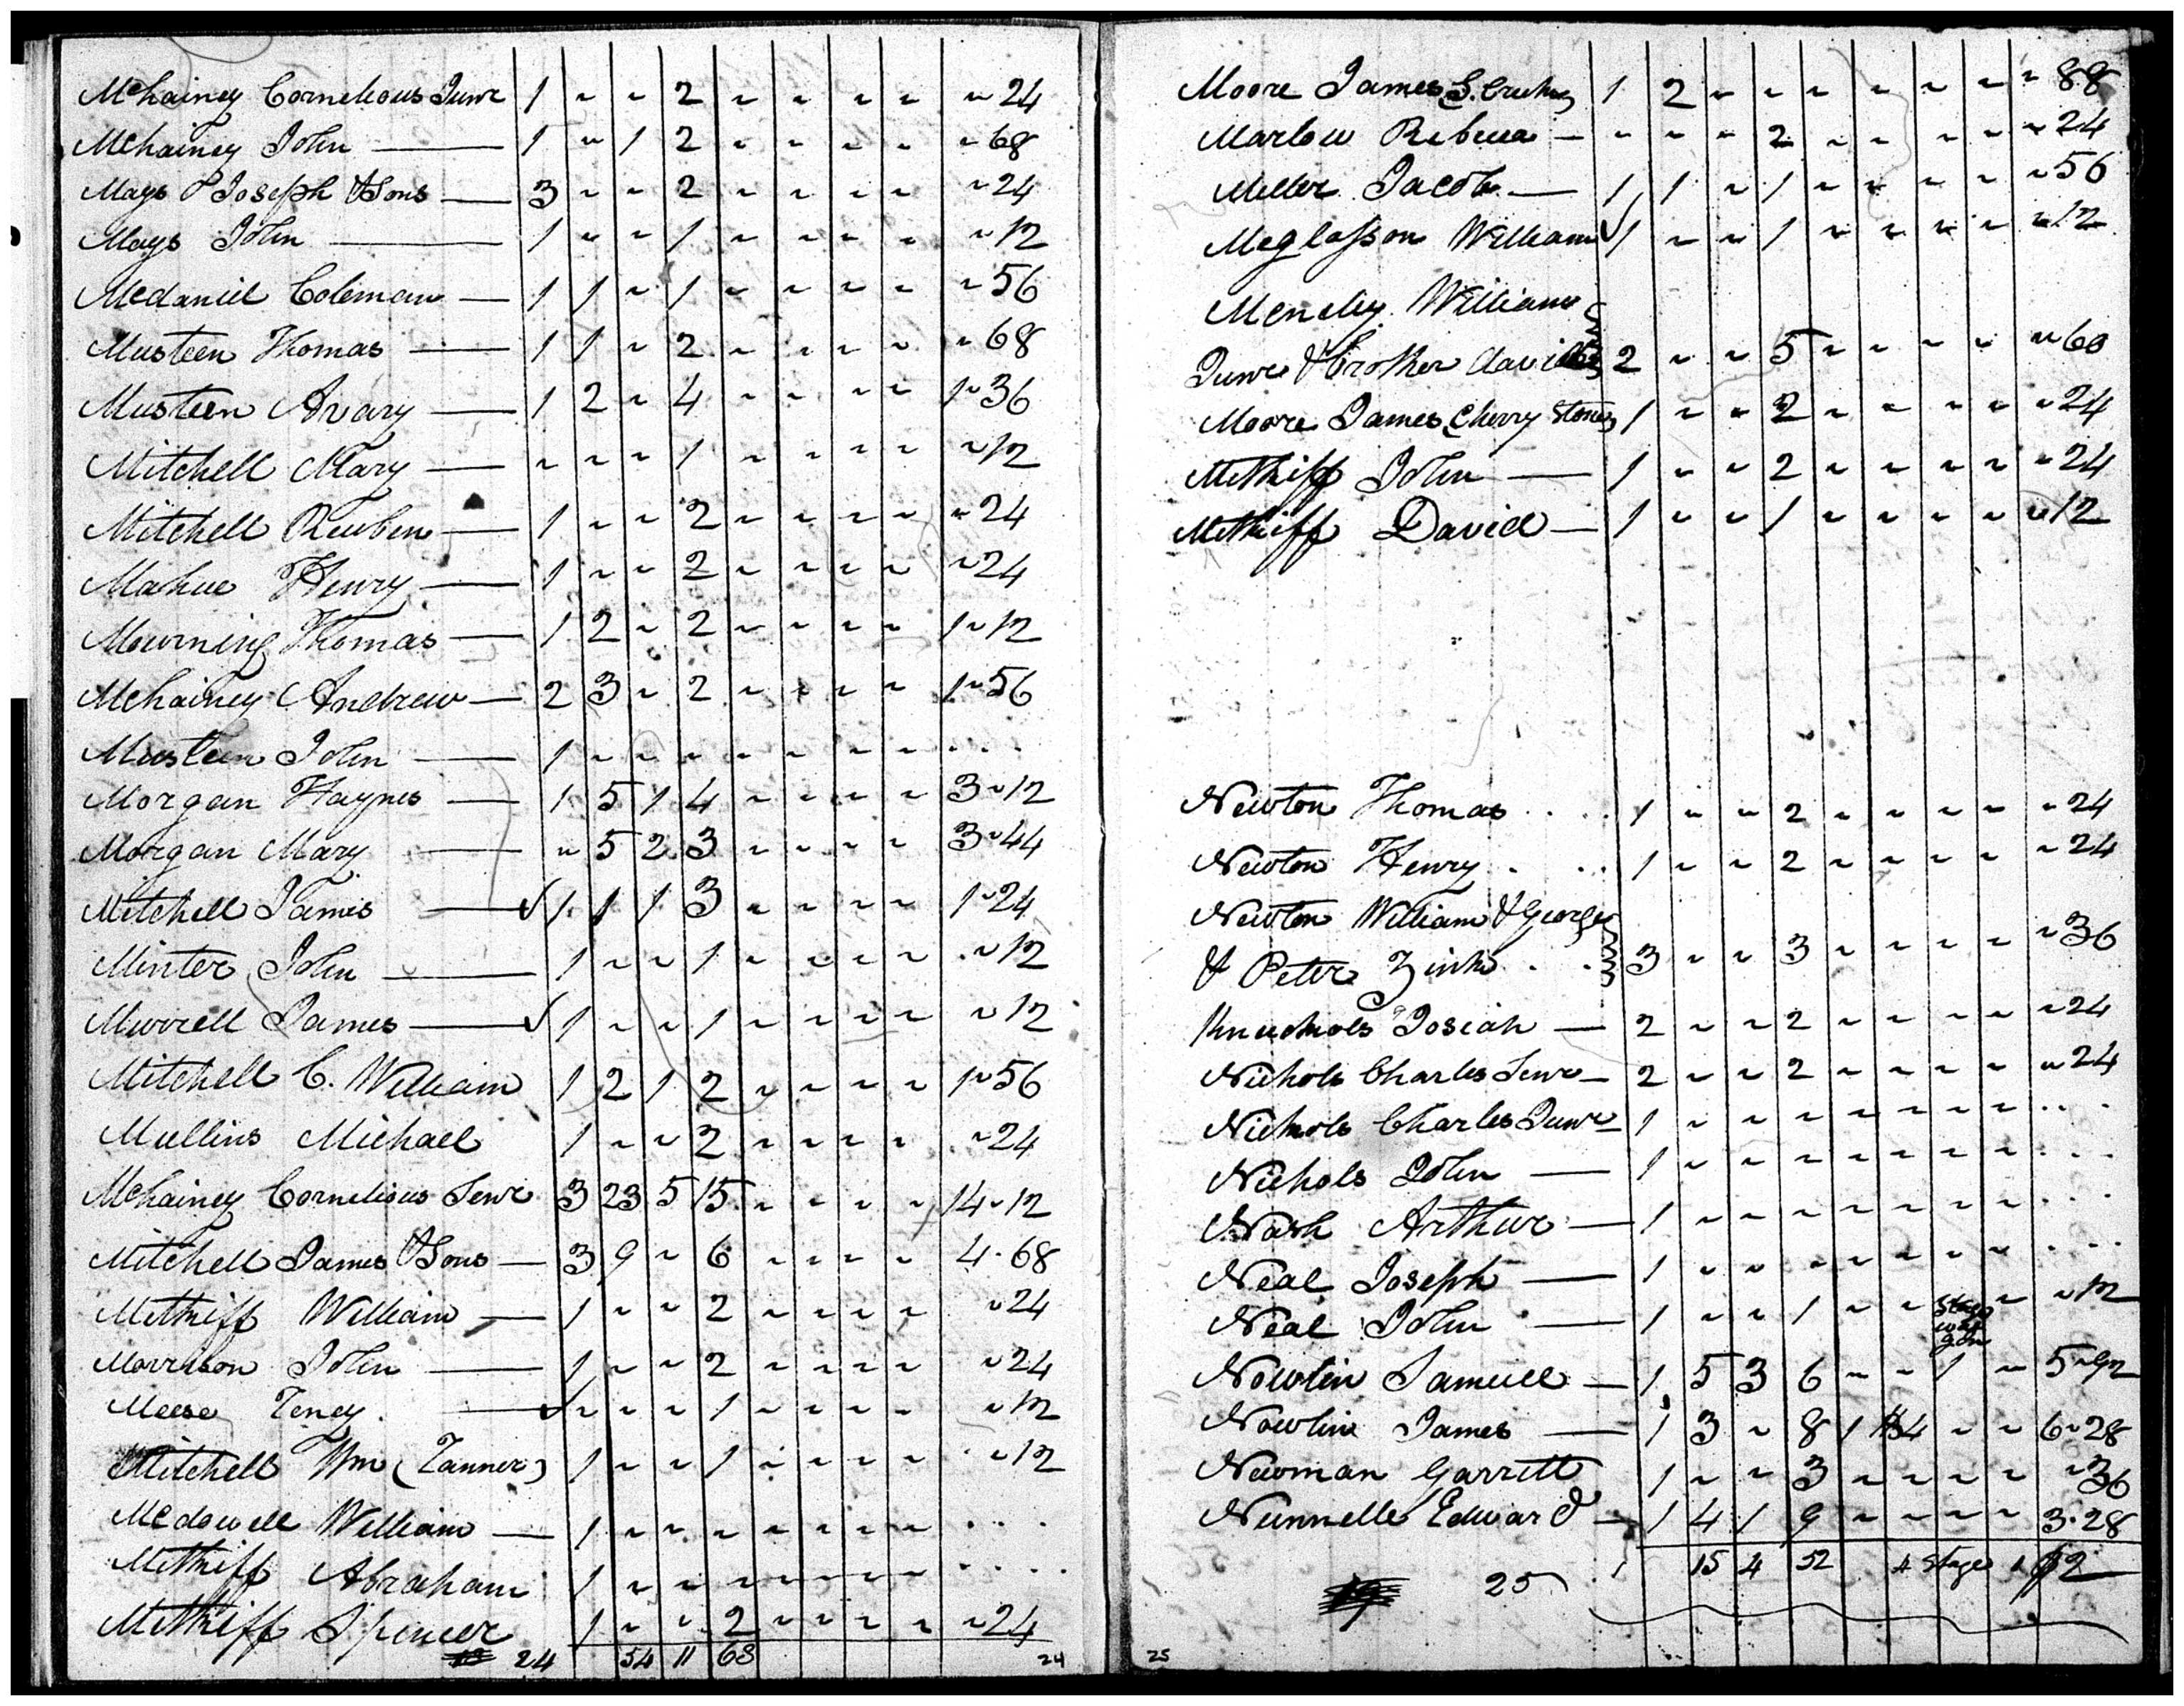 Mchainey Cornelious Junr 1 " " 2 " " " " " 24
Mchainey John 1 " 1 2 " " " " " 68
Mays Joseph & Sons 3 " " 2 " " " " " 24
Mays John 1 " " 1 " " " " " 12
Mcdaniel Coleman 1 1 " 1 " " " " " 56
Musteen Thomas 1 1 " 2 " " " " " 68
Musteen Avary 1 2 " 4 " " " " 1 " 36
Mitchell Mary " " " 1 " " " " " 12
Mitchell Reuben 1 " " 2 " " " " " 24
Mahue Henry 1 " " 2 " " " " " 24
Mourning Thomas 1 2 " 2 " " " " 1 " 12
Mchainey Andrew 2 3 " 2 " " " " 1 " 56
Musteen John 1 " " " " " " " . . .
Morgan Haynes 1 5 1 4 " " " " 3 " 12
Morgan Mary " 5 2 3 " " " " 3 " 44
Mitchell James ✓ 1 1 1 3 " " " " 1 " 24
Minter John 1 " " 1 " " " " " 12
Murrell James ✓ 1 " " 1 " " " " " 12
Mitchell C. William 1 2 1 2 " " " " 1 " 56
Mullins Michael 1 " " 2 " " " " " 24
Mchainey Cornelious Senr 3 23 5 15 " " " " 14 " 12
Mitchell James & Sons 3 9 " 6 " " " " 4 . 68
Methiff William 1 " " 2 " " " " " 24
Morrison John 1 " " 2 " " " " " 24
Meese Teney ✓ " " " 1 " " " " " 12
Mitchell Wm (Tanner) 1 " " 1 " " " " " 12
Mcdowell William 1 " " " " " " " . . .
Methiff Abraham 1 " " " " " " " . . . .
Methiff Spencer 1 " " 2 " " " " " 24
24 54 11 68
24
Moore James S. 1 2 " " " " " " " 88
Marlow Rebecca " " " 2 " " " " " 24
Miller Jacob 1 1 " 1 " " " " " 56
Meglasson William ✓ 1 " " 1 " " " " " 12
Meneley William
Junr & brother david 2 " " 5 " " " " " 60
Moore James Cherry Stone 1 " " 2 " " " " " 24
Methiff John 1 " " 2 " " " " " 24
Methiff David 1 " " 1 " " " " " 12
Newton Thomas . . . 1 " " 2 " " " " " 24
Newton Henry . . . 1 " " 2 " " " " " 24
Newton William & George
& Peter Zink . . 3 " " 3 " " " " " 36
Knuchols Josiah 2 " " 2 " " " " " 24
Nichols Charles Senr 2 " " 2 " " " " " 24
Nichols Charles Junr 1 " " " " " " " . . .
Nichols John 1 " " " " " " " . . .
Nash Arthur 1 " " " " " " " . . .
Neal Joseph 1 " " " " " " " . . .
Neal John 1 " " 1 " " " " " 12
Stage
wag
gon
Nowlin Samuel 1 5 3 6 " " 1 " 5 " 92
Nowlin James 1 3 " 8 1 $4 " " 6 " 28
Newman Garrett 1 " " 3 " " " " " 36
Nunnelle Edward 1 4 1 9 " " " " 3 . 28
25 1 15 4 52 4 Stage 1
25